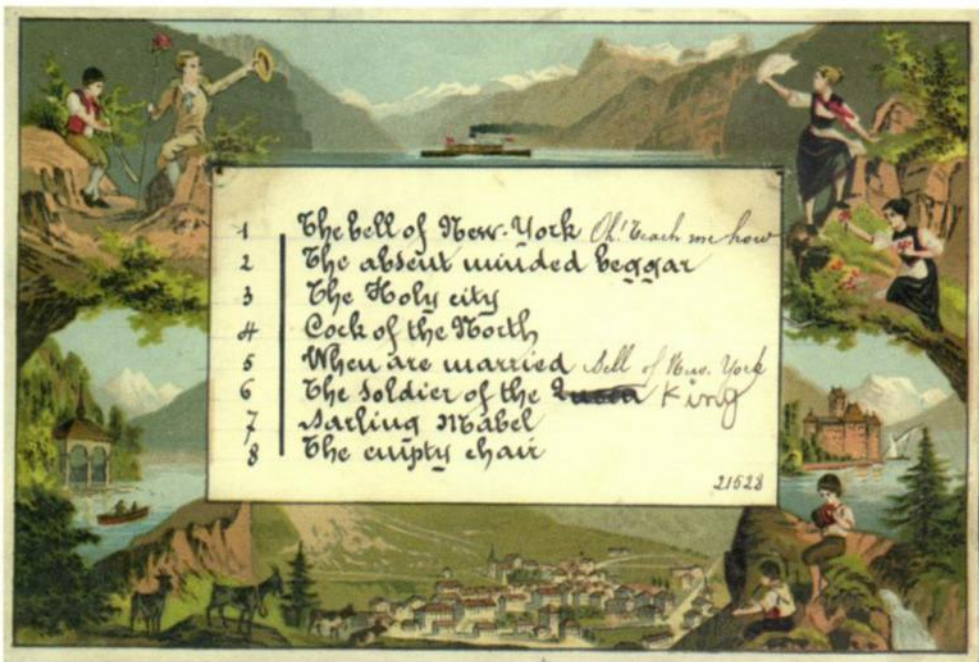 1 The bell of New-York Oh! teach me how
2 The absent minded beggar
3 The Holy city
4 Cock of the North
5 When are married Bell of New-York
6 The Soldier of the Queen King
7 Darling Mabel
8 The empty chair
21528